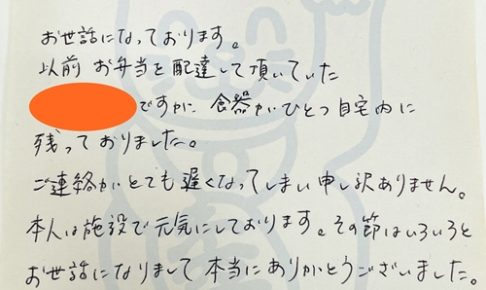 お世話になっております。
以前 お弁当を配達して頂いていた
ですがに 食器がひとつ自宅内に
残っておりました。
ご連絡がとても遅くなってしまい申し訳ありません。
本人は施設で元気にしております。その節はいろいろと
お世話になりまして本当にありがとうございました。